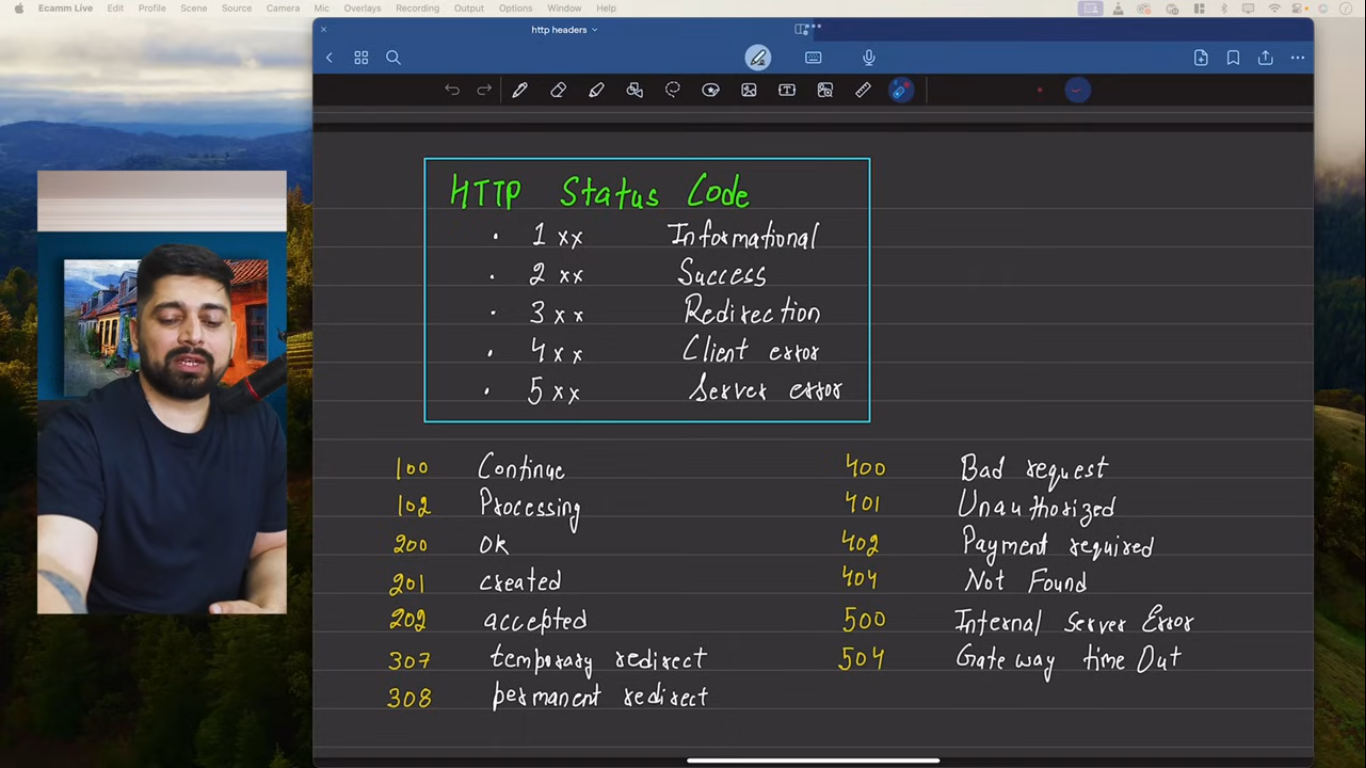 Ecamm Live Edit Profile Scene Source Camera Mic Overlays Recording Output Options Window Help
http headers
HTTP Status Code
1xx Informational
2xx Success
3xx Redirection
4xx Client error
5xx Server error
100 Continue
102 Processing
200 OK
201 created
202 accepted
307 temporary redirect
308 permanent redirect
400 Bad request
401 Unauthorized
402 Payment required
404 Not Found
500 Internal Server Error
504 Gateway time Out